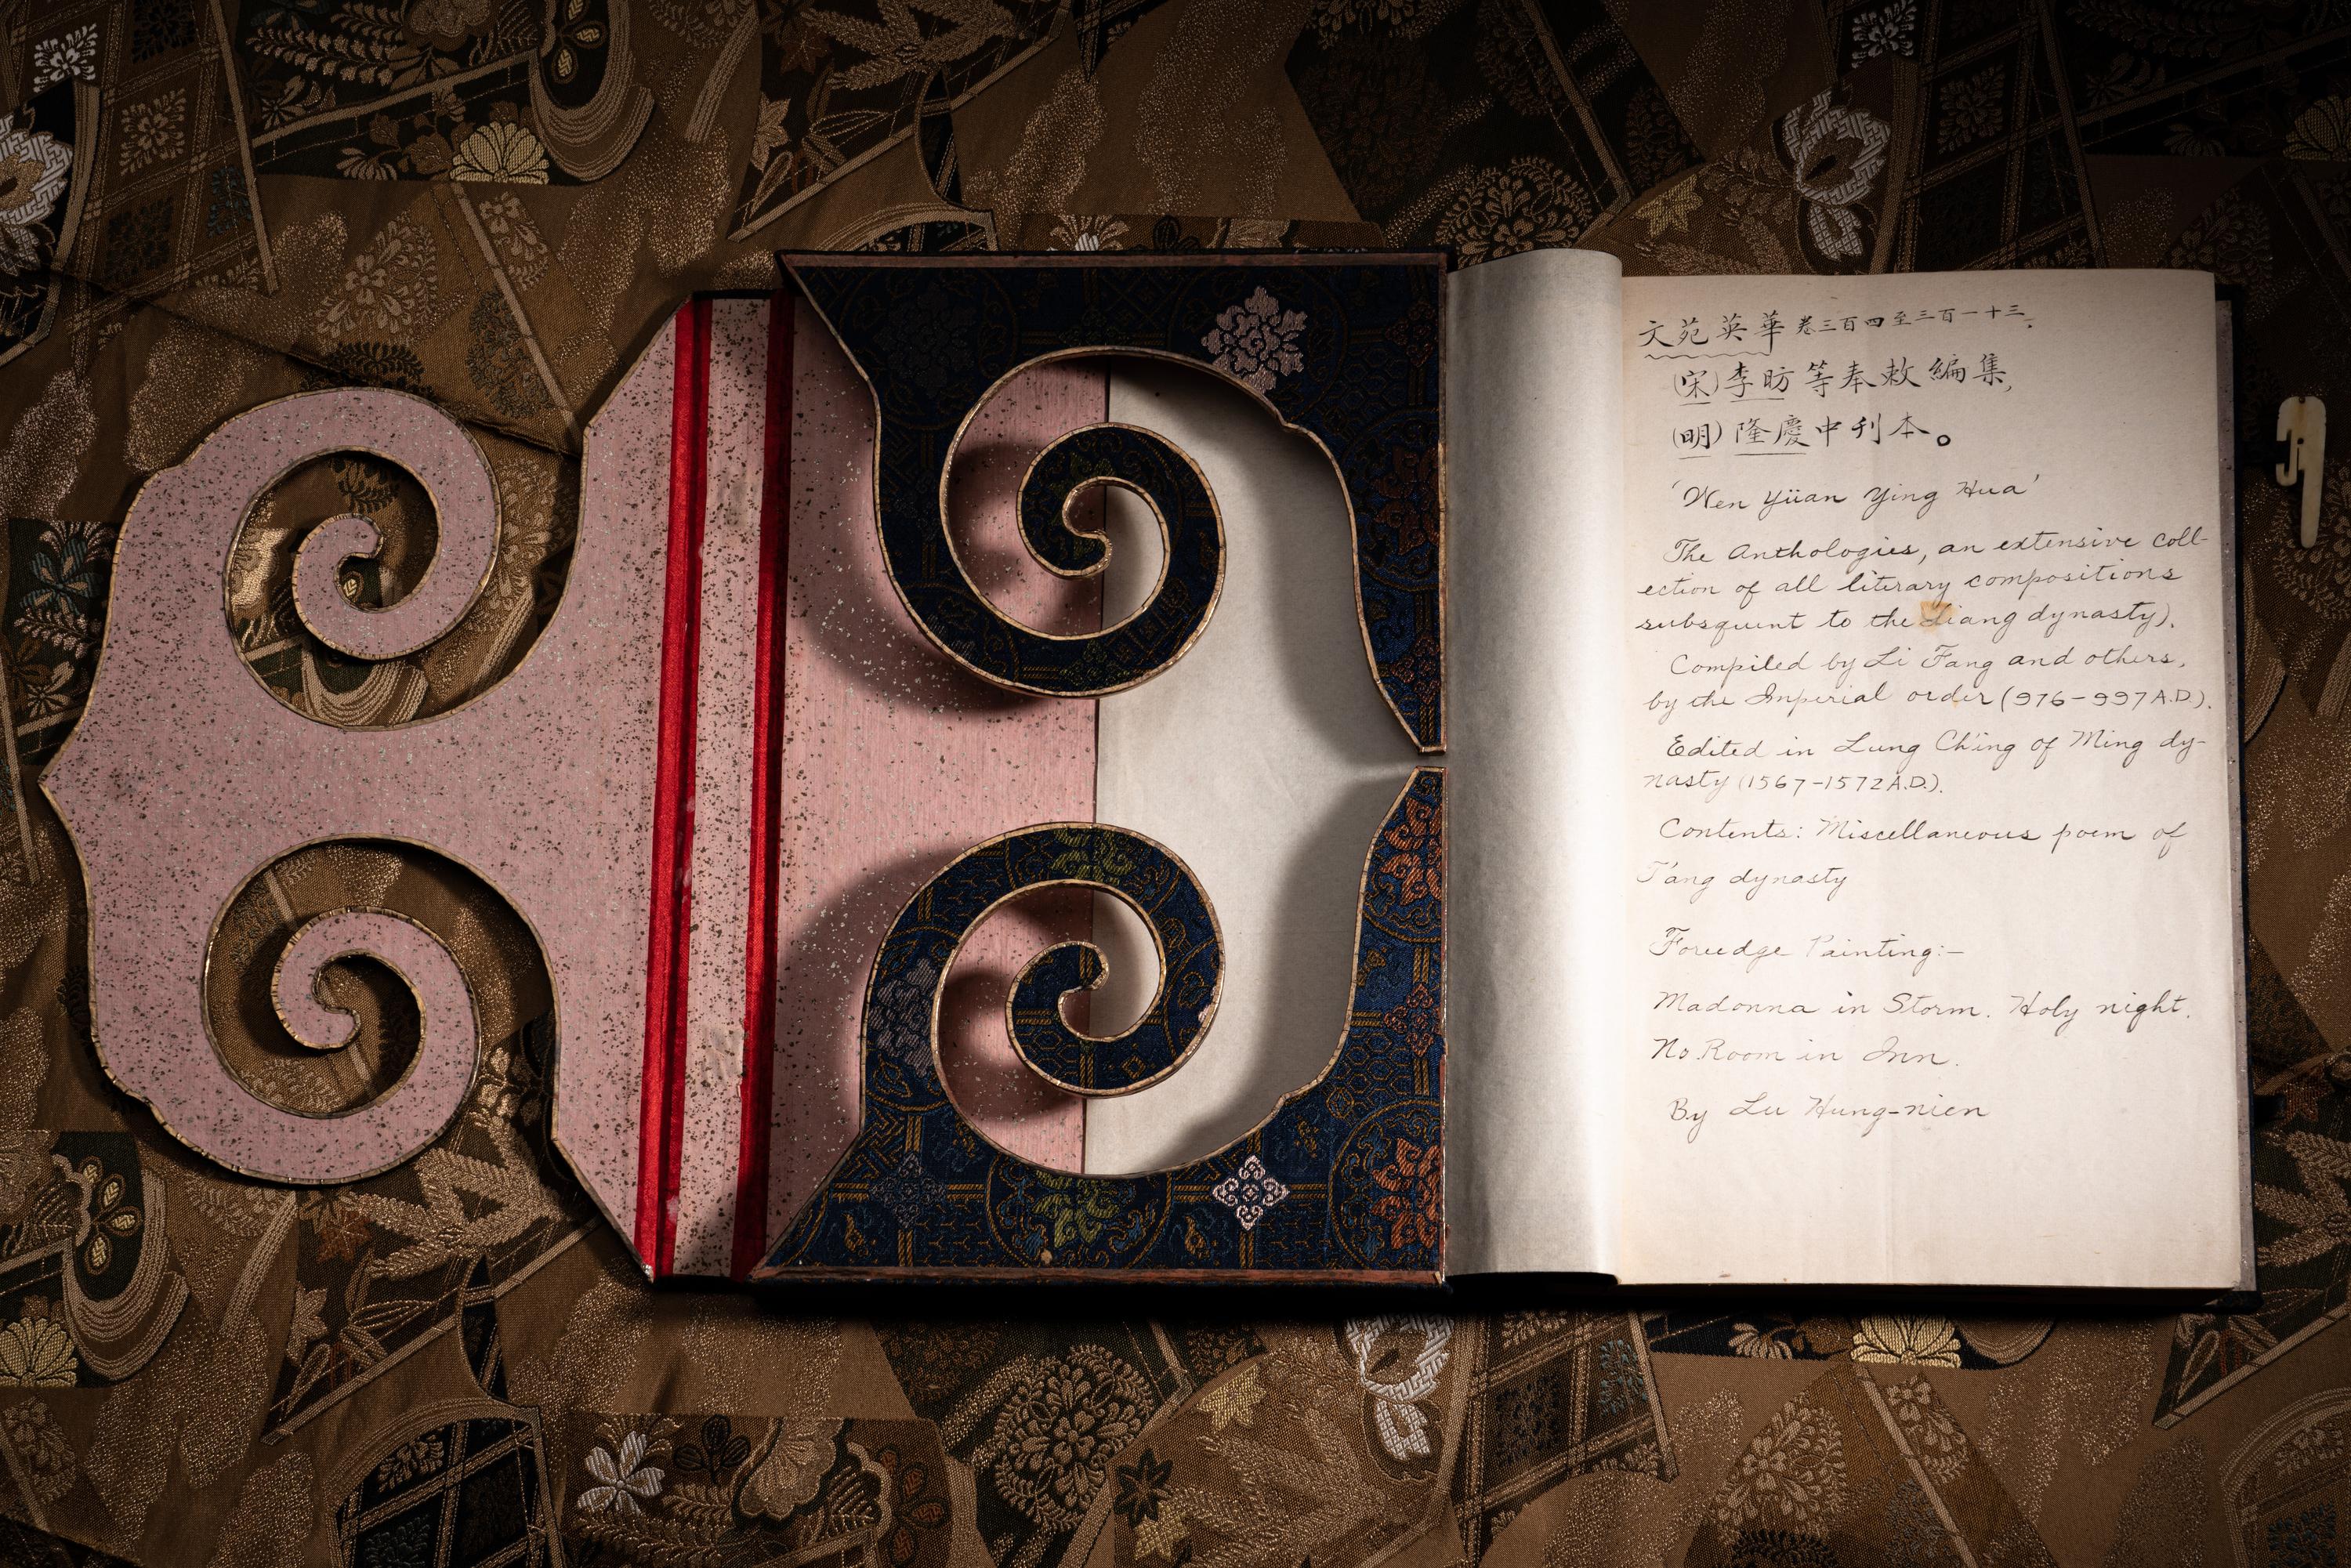 文苑英華 卷三百四至三百一十三.
(宋)李昉等奉敕編集,
(明)隆慶中刊本。
'Wen Yüan Ying Hua'
The Anthologies, an extensive coll-
ection of all literary compositions
subsquent to the Liang dynasty).
Compiled by Li Fang and others,
by the Imperial order (976-997 A.D.).
Edited in Lung Ch'ing of Ming dy-
nasty (1567-1572 A.D.).
Contents: Miscellaneous poem of
T'ang dynasty
Foreedge Painting:-
Madonna in Storm. Holy night.
No Room in Inn.
By Lu Hung-nien